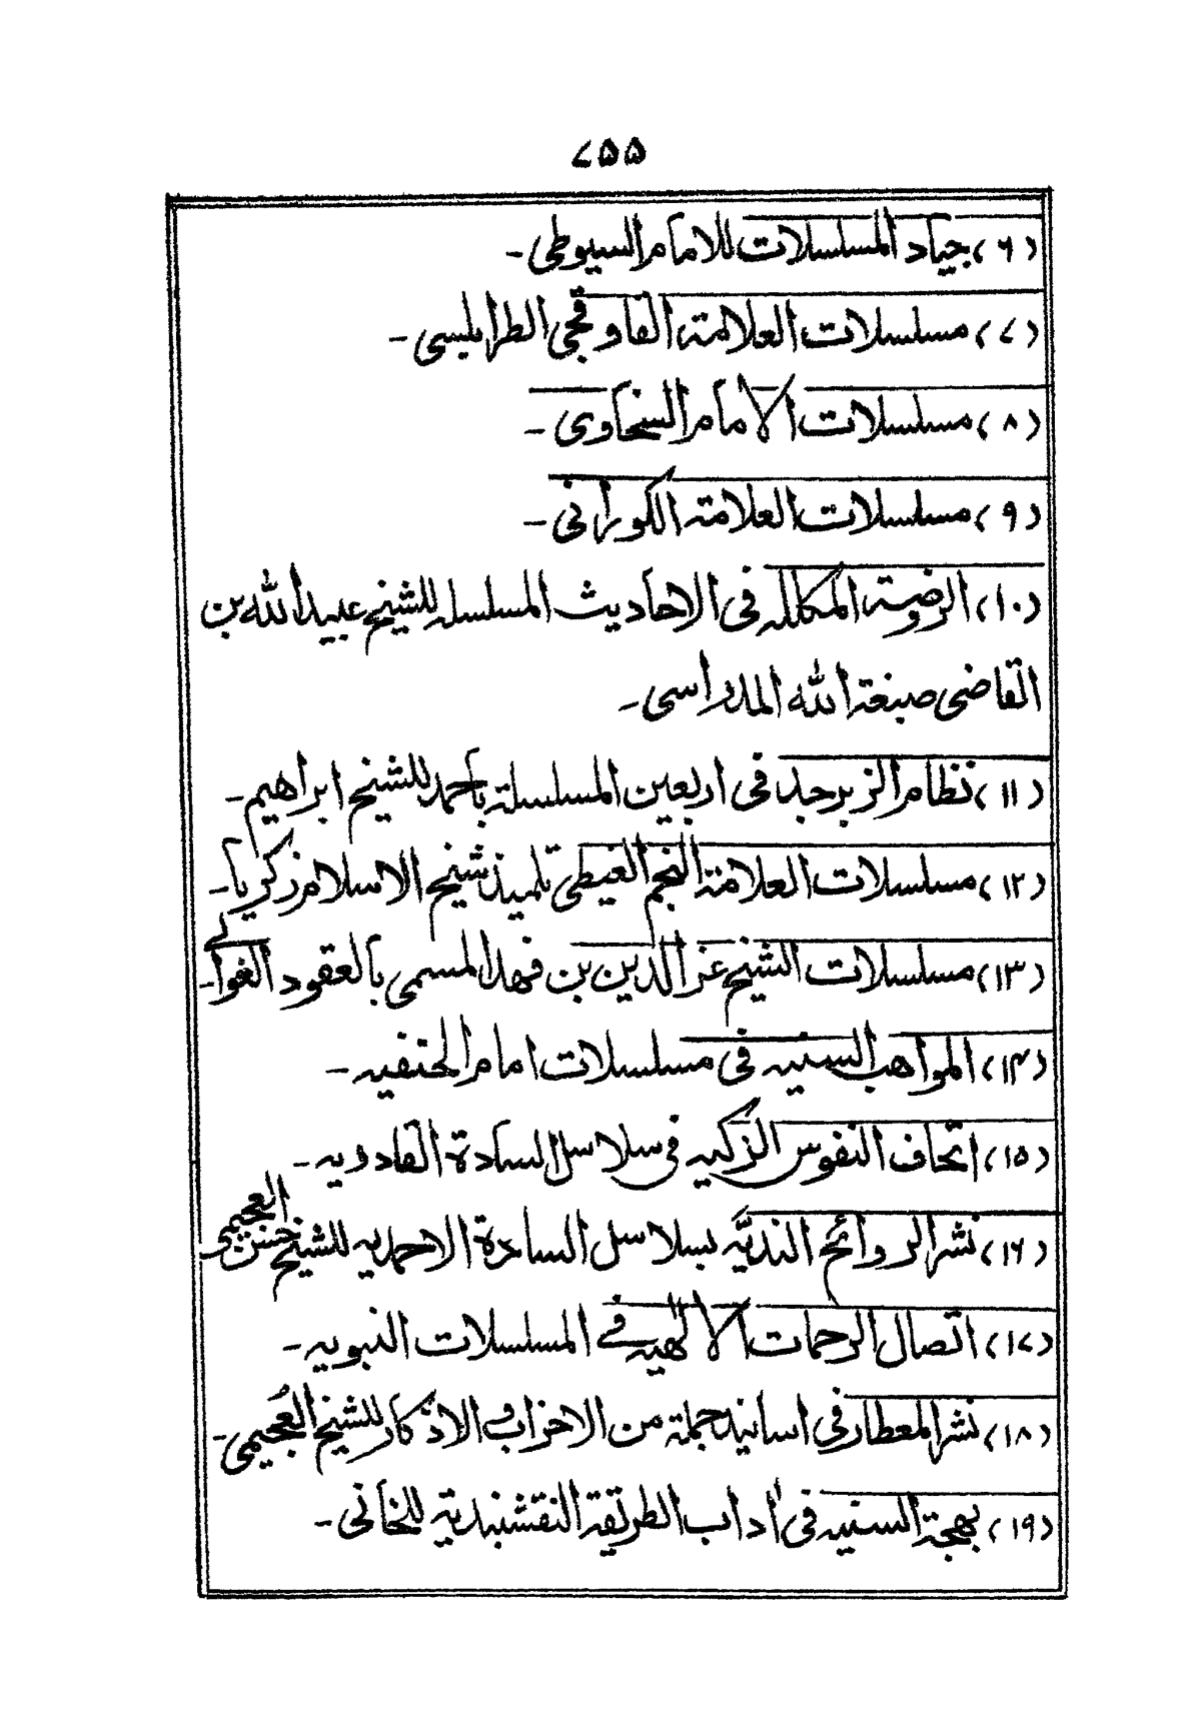 ۷۵۵
(۶) جیاد المسلسلات للامام السیوطی۔
(۷) مسلسلات العلامۃ القاوقجی الطرابلسی۔
(۸) مسلسلات الامام السخاوی۔
(۹) مسلسلات العلامۃ الکورانی۔
(۱۰) الروضۃ المکللہ فی الاحادیث المسلسلہ للشیخ عبید اللہ بن
القاضی صبغۃ اللہ المدراسی۔
(۱۱) نظام الزبرجد فی اربعین المسلسلۃ باحمد للشیخ ابراھیم۔
(۱۲) مسلسلات العلامۃ النجم الغیطی تلمیذ شیخ الاسلام زکریا۔
(۱۳) مسلسلات الشیخ عز الدین بن فھد المسمی بالعقود الغوالی۔
(۱۴) المواھب السنیہ فی مسلسلات امام الحنفیہ۔
(۱۵) اتحاف النفوس الزکیہ فی سلاسل السادۃ القادریہ۔
(۱۶) نشر الروائح الندیّہ بسلاسل السادۃ الاحمدیہ للشیخ حسن العجیمی
(۱۷) اتصال الرحمات الالٰھیہ فے المسلسلات النبویہ۔
(۱۸) نشر المعطار فی اسانید جملۃ من الاحزاب و الاذکار للشیخ العُجیمی۔
(۱۹) بھجۃ السنیہ فی اٰداب الطریقۃ النقشبندیۃ للخانی۔